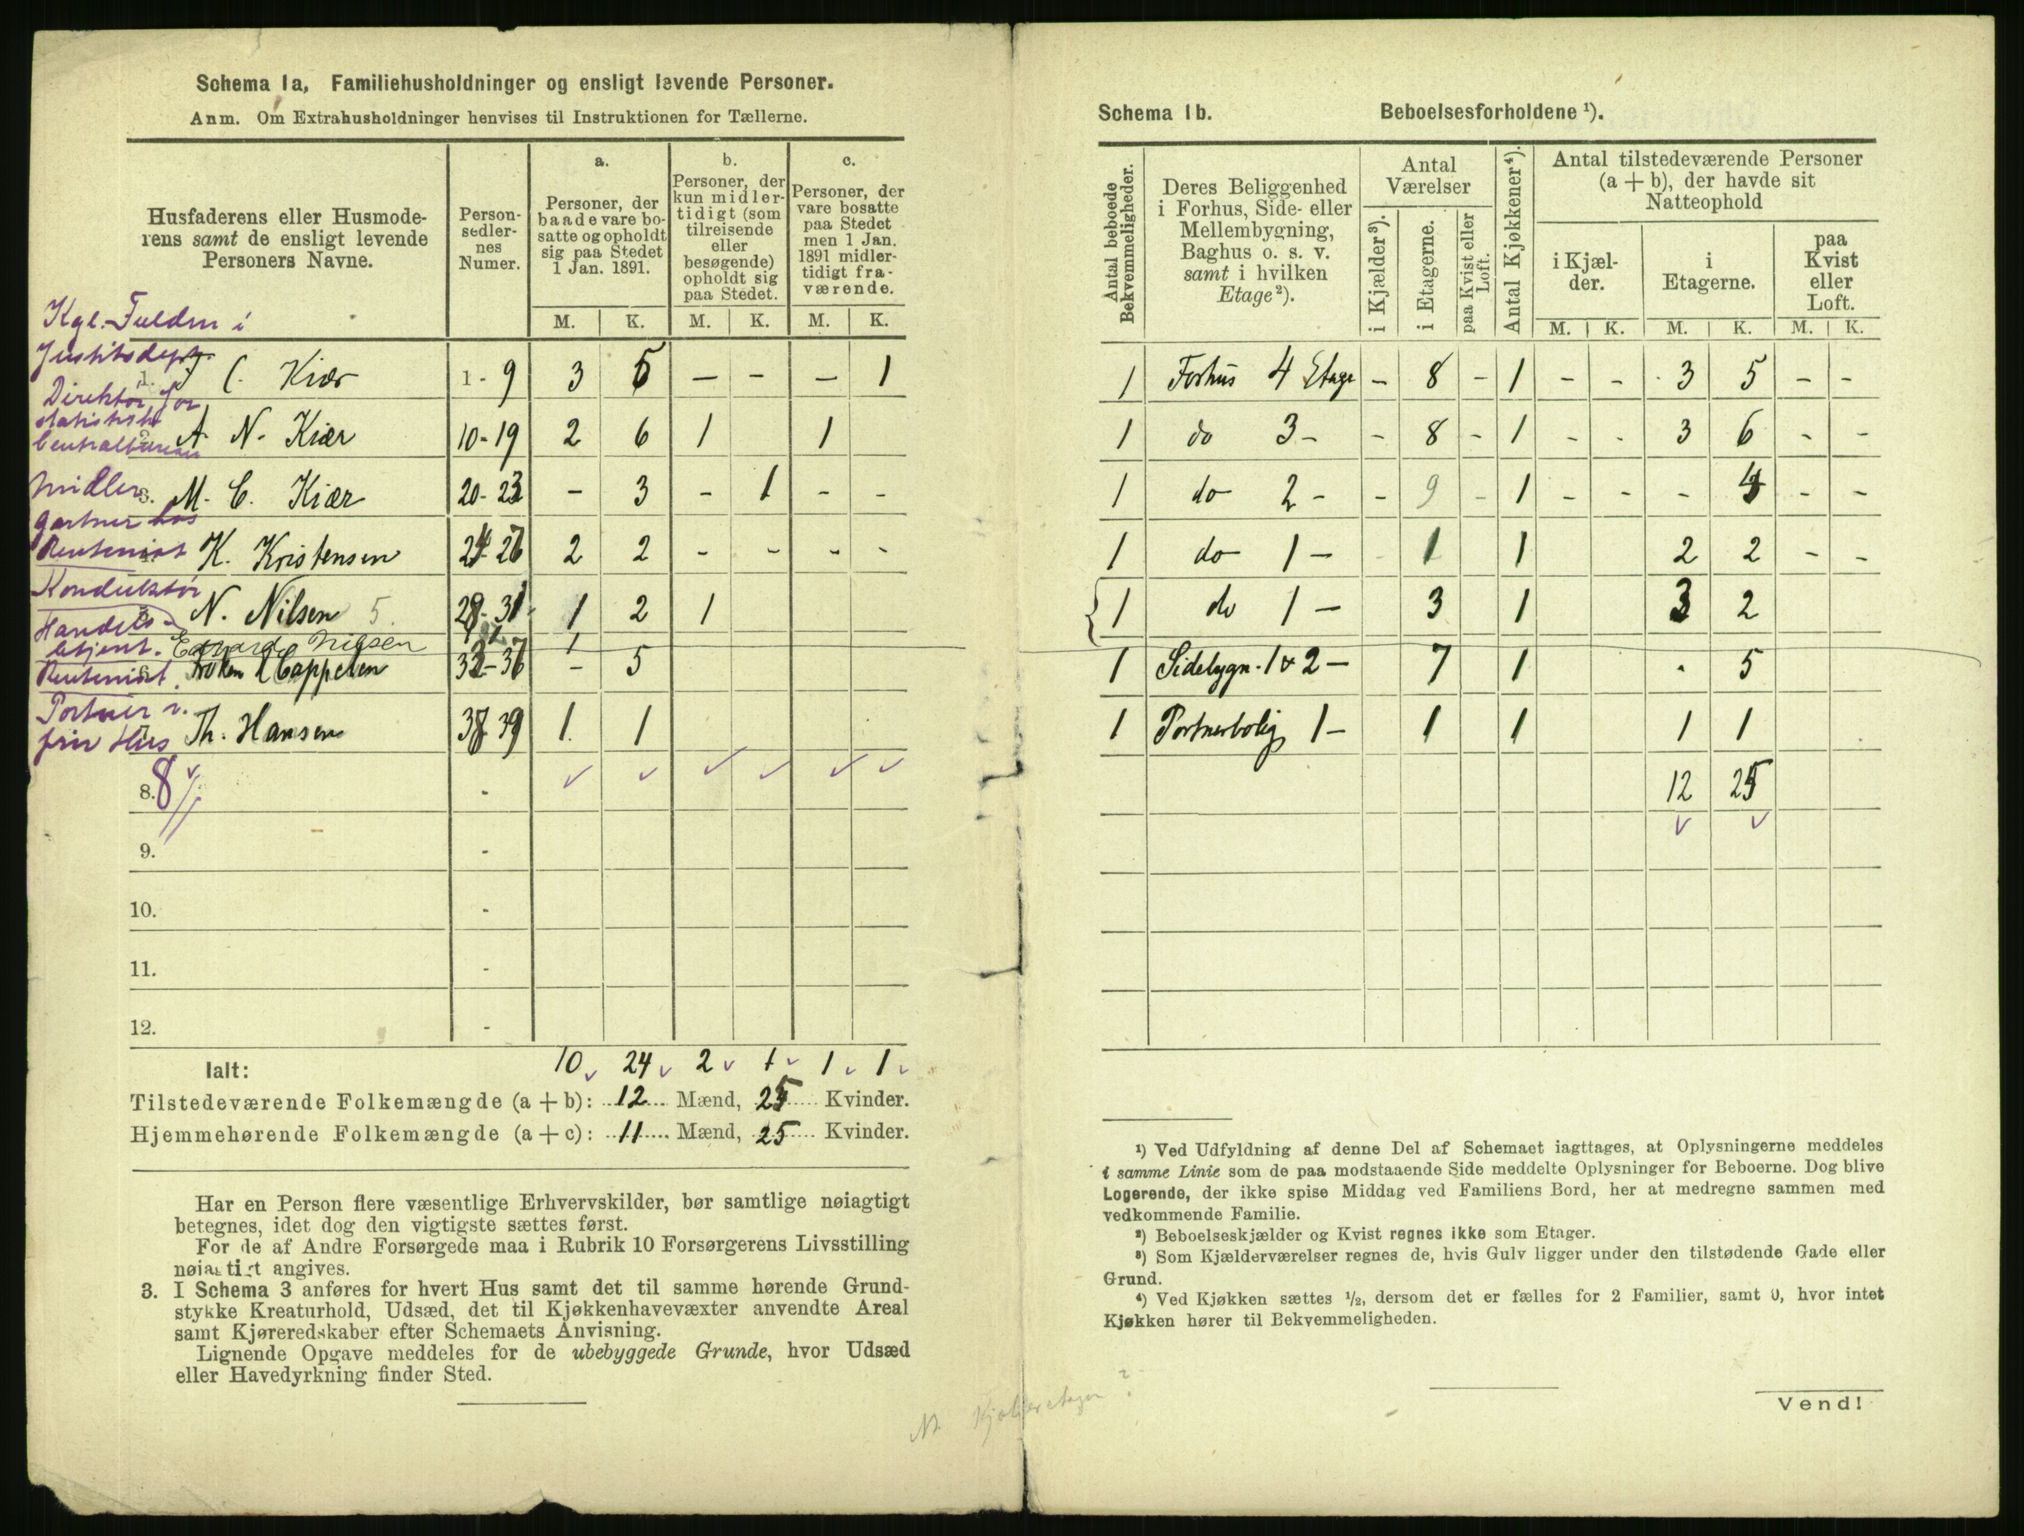 Schema 1a, Familiehusholdninger og ensligt levende Personer.
Anm. Om Extrahusholdninger henvises til Instruktionen for Tællerne.
Husfaderens eller Husmode-
rens samt de ensligt levende
Personers Navne.
Person-
sedler-
nes
Numer.
a.
Personer, der
baade vare bo-
satte og opholdt
sig paa Stedet
1 Jan. 1891.
b.
Personer, der
kun midler-
tidigt (som
tilreisende
eller
besøgende)
opholdt sig
paa Stedet.
c.
Personer, der
vare bosatte
paa Stedet
men 1 Jan.
1891 midler-
tidigt fra-
værende.
M. K. M. K. M. K.
Kgl. Fuldm i
Justitsdept.
1. J C. Kiær 1-9 3 5 – – – 1
Direktør for
statistiske
Centralbureau
2. A. N. Kiær 10-19 2 6 1 1
Midler
3. M. C. Kiær 20-23 – 3 – 1 – –
Gartner hos
Rentenist K. Kristensen 24-27 2 2 – – – –
Konduktør
N. Nilsen 5. 28-31 1 2 1
Handels-
Agent. Edvard Nilsen 1
Rentenist. Frøken L Cappelen 33-37 – 5
Portner i
priv Hus Th. Hansen 38-39 1. 1
8. 8 -
9. -
10. -
11. -
12. -
Ialt: 10 24 2 1 1 1
Tilstedeværende Folkemængde (a + b): 12 Mænd, 25 Kvinder.
Hjemmehørende Folkemængde (a + c): 11 Mænd, 25 Kvinder.
Har en Person flere væsentlige Erhvervskilder, bør samtlige nøiagtigt
betegnes, idet dog den vigtigste sættes først.
For de af Andre Forsørgede maa i Rubrik 10 Forsørgerens Livsstilling
nøiagtigt angives.
3. I Schema 3 anføres for hvert Hus samt det til samme hørende Grund-
stykke Kreaturhold, Udsæd, det til Kjøkkenhavevæxter anvendte Areal
samt Kjøreredskaber efter Schemaets Anvisning.
Lignende Opgave meddeles for de ubebyggede Grunde, hvor Udsæd
eller Havedyrkning finder Sted.
Nt Kjælderetagen?
Schema 1b. Beboelsesforholdene ¹).
Antal beboede
Bekvemmeligheder.
Deres Beliggenhed
i Forhus, Side- eller
Mellembygning,
Baghus o. s. v.
samt i hvilken
Etage ²).
Antal
Værelser
i Kjælder³).
i Etagerne.
paa Kvist eller
Loft.
Antal Kjøkkener⁴).
Antal tilstedeværende Personer
(a + b), der havde sit
Natteophold
i Kjæl-
der.
i
Etagerne.
paa
Kvist
eller
Loft.
M. K. M. K. M. K.
1 Forhus 4 Etage – 8 – 1 – – 3 5 – –
1 do 3 – – 8 – 1 – - 3 6 – –
1 do 2 – – 9 – 1 – – – 4 – –
1 do 1 – 1 1 2 2 – –
1 do 1 – 3 1 3 2
1 Sidebygn. 1 & 2 – 7 1 - 5
1 Portnerbolig 1 – 1 1 1 1
12 25
¹) Ved Udfyldning af denne Del af Schemaet iagttages, at Oplysningerne meddeles
i samme Linie som de paa modstaaende Side meddelte Oplysninger for Beboerne. Dog blive
Logerende, der ikke spise Middag ved Familiens Bord, her at medregne sammen med
vedkommende Familie.
²) Beboelseskjælder og Kvist regnes ikke som Etager.
³) Som Kjælderværelser regnes de, hvis Gulv ligger under den tilstødende Gade eller
Grund.
⁴) Ved Kjøkken sættes ½, dersom det er fælles for 2 Familier, samt 0, hvor intet
Kjøkken hører til Bekvemmeligheden.
Vend!